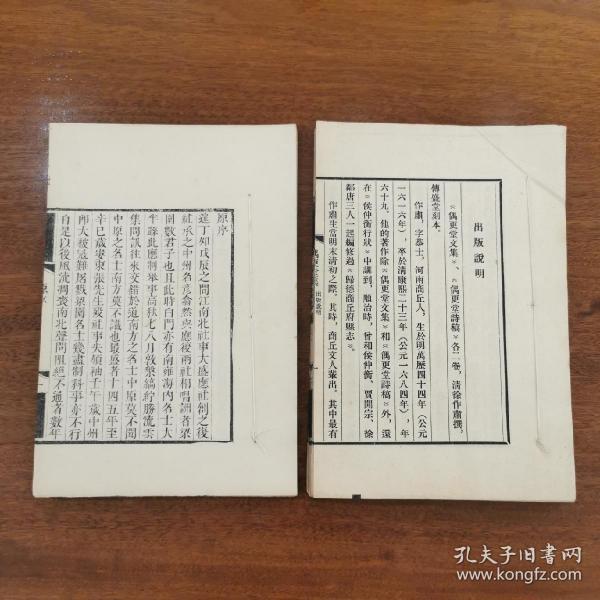 出版説明
《偶更堂文集》、《偶更堂詩稿》各二卷,清徐作肅撰,
傳盛堂刻本。
作肅,字恭士,河南商丘人,生於明萬歷四十四年(公元
一六一六年),卒於清康熙二十三年(公元一六八四年),年
六十九。他的著作除《偶更堂文集》和《偶更堂詩稿》外,還
在《侯仲衡行狀》中講到,順治時,曾和侯仲衡、賈開宗、徐
鄰唐三人一起編修過《歸德商丘府縣志》。
作肅生當明末清初之際,其時,商丘文人輩出,其中最有
出版説明
原序
達丁知戊辰之間江南北社事大盛應社創之後
社承之中州名彥翕然與應復兩社相唱酬者梁
園數君子也且此時白門亦有南雍海內名士大
半雜此應制舉事高秋七八月敦槃縞紵勝流雲
集問訊往來交錯於道南方之名士中原莫不聞
中原之名士南方莫不識也最盛者十四五年至
辛巳歲婁東張先生歿社事大頹袖壬午歲中州
即大被寇難屠戮梁園名士幾盡制科事亦不行
自是以後風流凋喪南北聲問阻絕不通者數年
原序
孔夫子旧书网
www.kongfz.com